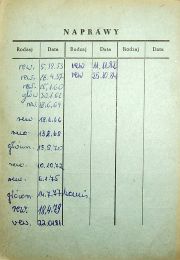 NAPRAWY
Rodzaj Data Rodzaj Data Rodzaj Data
rew. 5.12.53 rew 11.11.82
rew. 18.4.57 rew 25.10.84
rew. 15.1.60
głów 30.1.62
rew. 18.6.64
rew 18.1.66
rew. 13.8.68
główn. 13.5.70
rew. 10.10.72
rew. 6.1.75
główn. 14.7.77
rew. 18.4.79
rew. 22.01.81